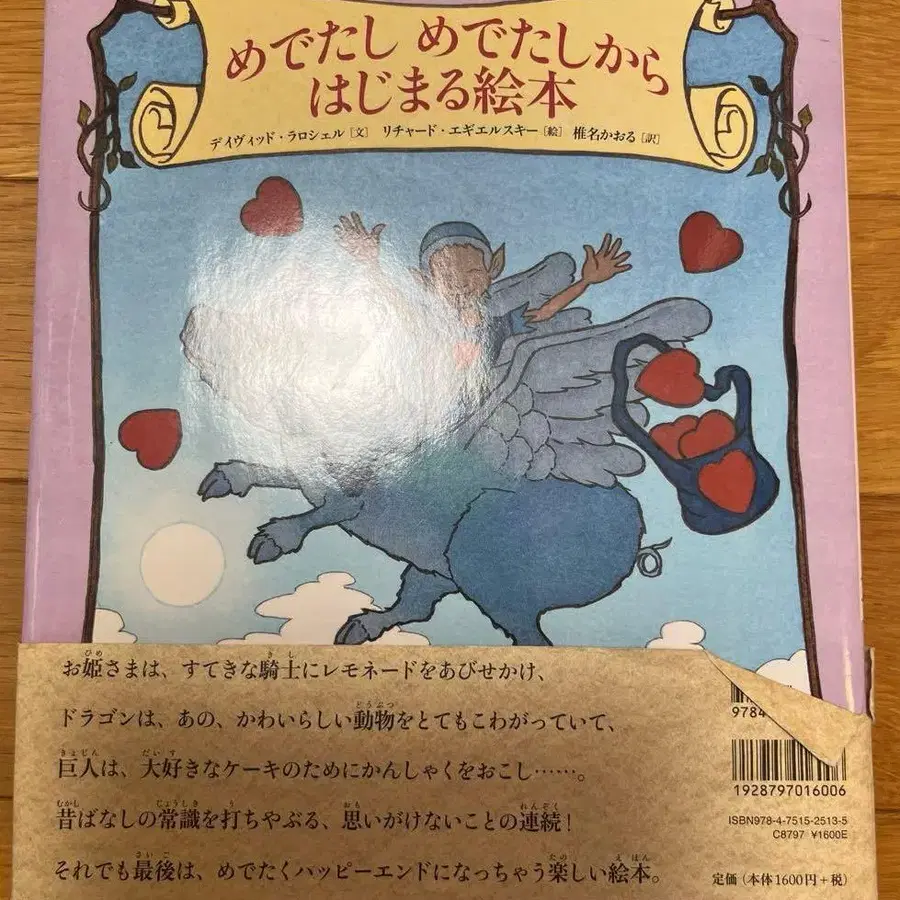 めでたし めでたしから
はじまる絵本
デイヴィッド・ラロシェル[文] リチャード・エギエルスキー[絵] 椎名かおる[訳]
お姫さまは、すてきな騎士にレモネードをあびせかけ、
ドラゴンは、あの、かわいらしい動物をとてもこわがっていて、
巨人は、大好きなケーキのためにかんしゃくをおこし……。
昔ばなしの常識を打ちやぶる、思いがけないことの連続!
それでも最後は、めでたくハッピーエンドになっちゃう楽しい絵本。
9784
1928797016006
ISBN978-4-7515-2513-5
C8797 ¥1600E
定価(本体1600円+税)